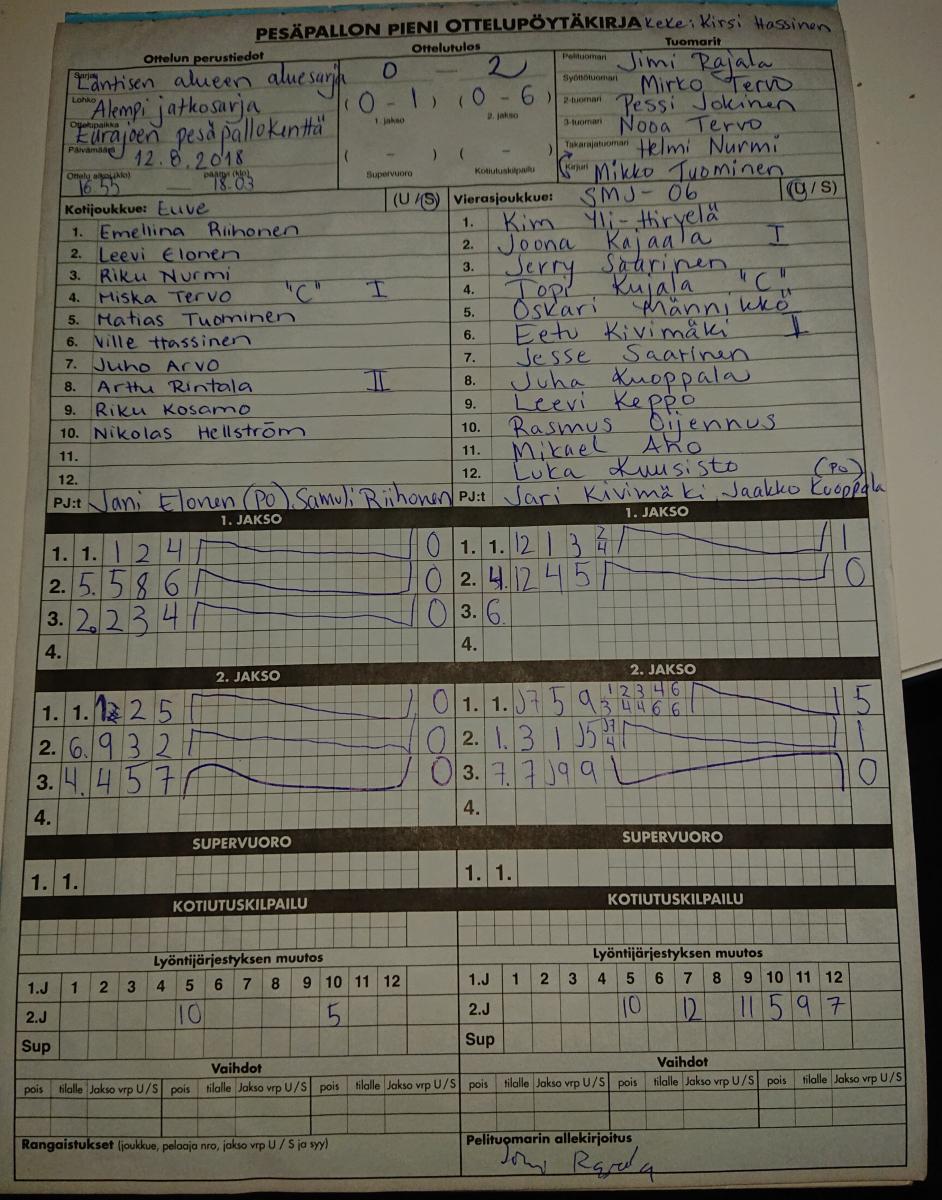 PESÄPALLON PIENI OTTELUPÖYTÄKIRJA Keke: Kirsi Hassinen
Ottelun perustiedot
Sarja Läntisen alueen aluesarja
Lohko Alempi jatkosarja
Ottelupaikka Eurajoen pesäpallokenttä
Päivämäärä 12.8.2018
Ottelu alkoi (klo) 16.55 — päättyi (klo) 18.03
Ottelutulos
0 — 2
(0 - 1) (0 - 6)
1. jakso 2. jakso
( - ) ( - )
Supervuoro Kotiutuskilpailu
Tuomarit
Pelituomari Jimi Rajala
Syöttötuomari Mirko Tervo
2-tuomari Pessi Jokinen
3-tuomari Nooa Tervo
Takarajatuomari Helmi Nurmi
Kirjuri Mikko Tuominen
Kotijoukkue: Euve (U / S)
1. Emellina Riihonen
2. Leevi Elonen
3. Riku Nurmi
4. Miska Tervo "C" I
5. Matias Tuominen
6. Ville Hassinen
7. Juho Arvo
8. Arttu Rintala II
9. Riku Kosamo
10. Nikolas Hellström
11.
12.
PJ:t Jani Elonen (PO), Samuli Riihonen
Vierasjoukkue: SMJ-06 (U / S)
1. Kim Yli-Hirvelä
2. Joona Kajaala I
3. Jerry Saarinen
4. Topi Kujala "C"
5. Oskari Männikkö
6. Eetu Kivimäki II
7. Jesse Saarinen
8. Juha Kuoppala
9. Leevi Keppo
10. Rasmus Oijennus
11. Mikael Aho
12. Luka Kuusisto (PO)
PJ:t Jari Kivimäki, Jaakko Kuoppala
1. JAKSO
1. 1. 1 2 4 0
2. 5. 5 8 6 0
3. 2. 2 3 4 0
4.
2. JAKSO
1. 1. 2 5 0
2. 6. 9 3 2 0
3. 4. 4 5 7 0
4.
SUPERVUORO
1. 1.
KOTIUTUSKILPAILU
Lyöntijärjestyksen muutos
1.J 1 2 3 4 5 6 7 8 9 10 11 12
2.J 10 5
Sup
Vaihdot
pois tilalle Jakso vrp U / S pois tilalle Jakso vrp U / S pois tilalle Jakso vrp U / S
Rangaistukset (joukkue, pelaaja nro, jakso vrp U / S ja syy)
1. JAKSO
1. 1. 12 1 3 2 4 1
2. 4. 12 4 5 0
3. 6.
4.
2. JAKSO
1. 1. J7 5 9 1 2 3 4 6 3 4 4 6 6 5
2. 1. 3 1 J5 J7 4 1
3. 7. 7 J9 9 0
4.
SUPERVUORO
1. 1.
KOTIUTUSKILPAILU
Lyöntijärjestyksen muutos
1.J 1 2 3 4 5 6 7 8 9 10 11 12
2.J 10 12 11 5 9 7
Sup
Vaihdot
pois tilalle Jakso vrp U / S pois tilalle Jakso vrp U / S pois tilalle Jakso vrp U / S
Pelituomarin allekirjoitus